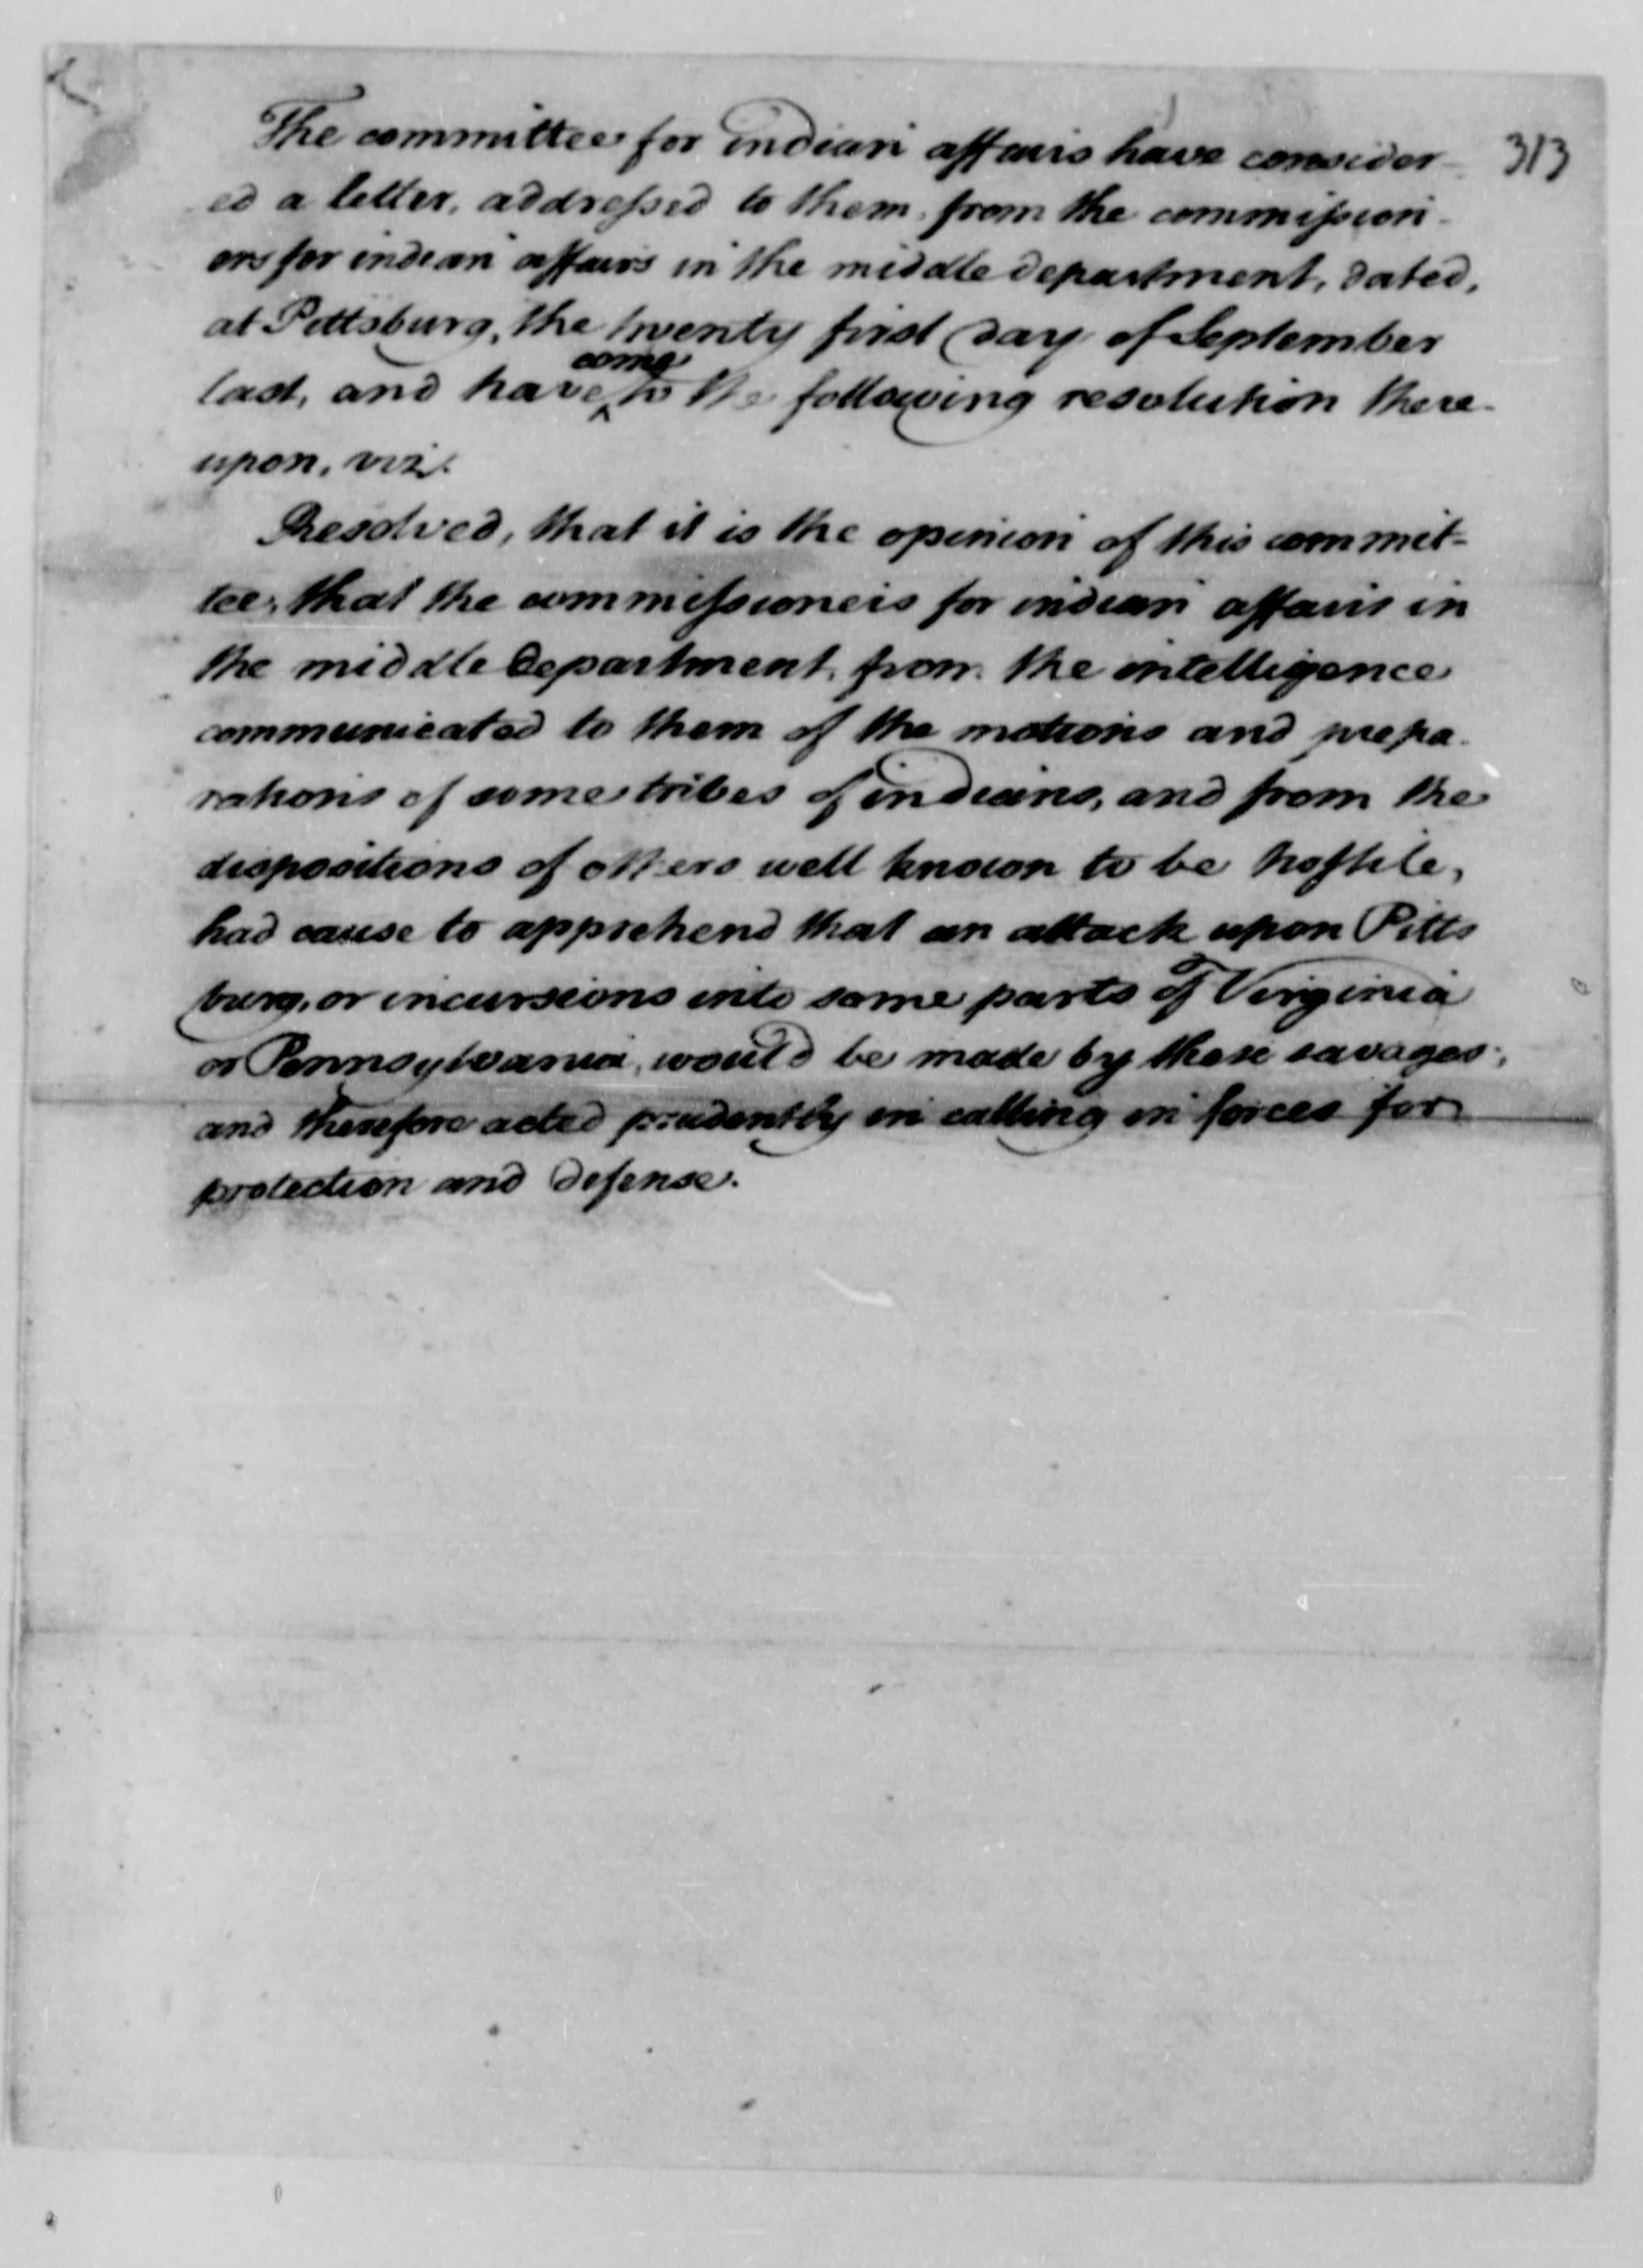 The committee for indian affairs have consider-
313
ed a letter, addressed to them, from the commission-
ers for indian affairs in the middle department, dated,
at Pittsburg, the twenty first day of September
come
last, and have ‸ to the following resolution there-
upon, viz.
Resolved, that it is the opinion of this commit-
tee, that the commissioners for indian affairs in
the middle department, from the intelligence
communicated to them of the motions and prepa-
rations of some tribes of indians, and from the
dispositions of others well known to be hostile,
had cause to apprehend that an attack upon Pitts
burg, or incursions into some parts of Virginia
or Pennsylvania, would be made by these savages;
and therefore acted prudently in calling in forces for
protection and defense.